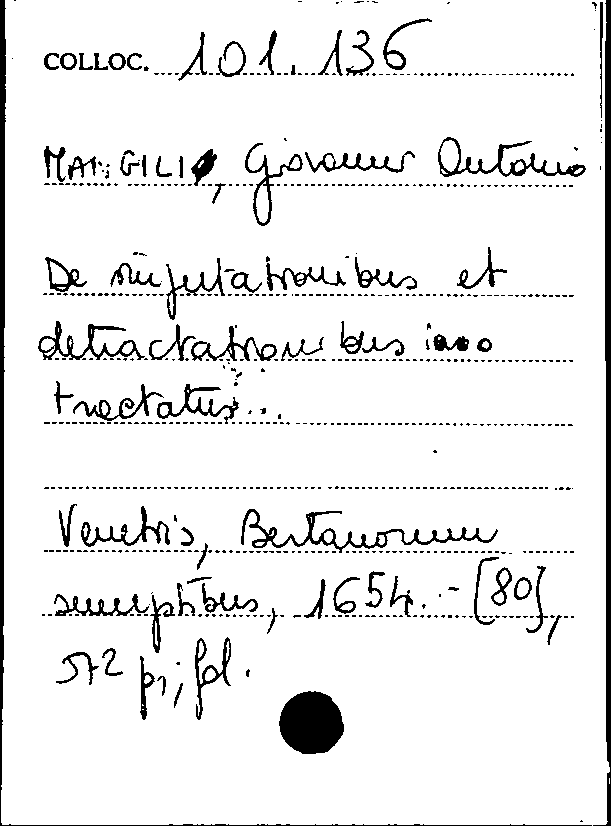 COLLOC. 101. 136
MANGILI, Giovanni Antonio
De imputationibus et
detractationibus
tractatus...
Venetiis, Bertanorum
sumptibus, 1654. - [80],
572 p; fol.